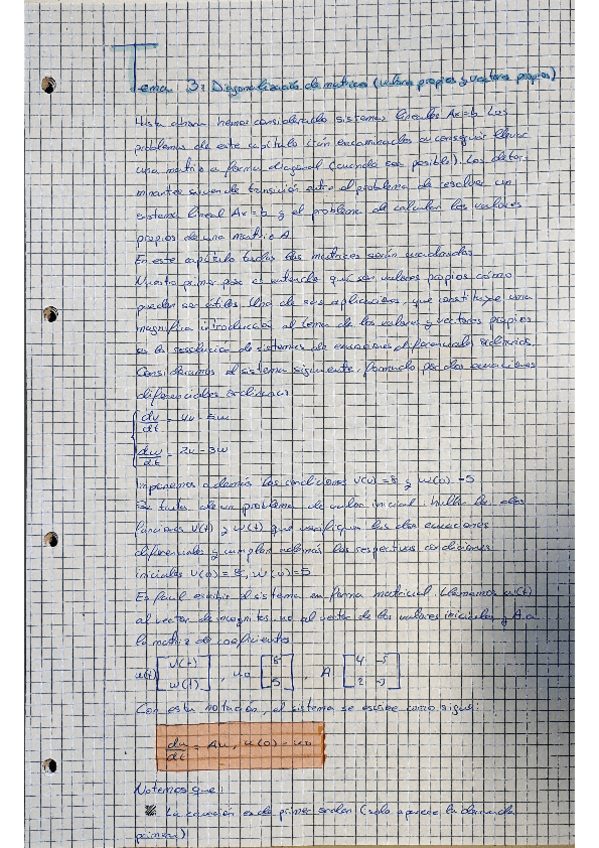 Tema 3: Diagonalización de matrices (valores propios y vectores propios)
Hasta ahora hemos considerado sistemas lineales Ax=b. Los
problemas de este capítulo están encaminados a conseguir llevar
una matriz a forma diagonal (cuando sea posible). Los deter-
minantes sirven de transición entre el problema de resolver un
sistema lineal Ax=b y el problema de calcular los valores
propios de una matriz A.
En este capítulo todas las matrices serán cuadradas.
Nuestro primer paso es entender qué son valores propios cómo
pueden ser útiles. Una de sus aplicaciones, que constituye una
magnífica introducción al tema de los valores y vectores propios
es la resolución de sistemas de ecuaciones diferenciales ordinarias.
Consideramos el sistema siguiente, formado por dos ecuaciones
diferenciales ordinarias
dv/dt = 4v - 5w
dw/dt = 2v - 3w
Imponemos además las condiciones v(0)=8 y w(0)=5
Se trata de un problema de valor inicial: hallar las dos
funciones v(t) y w(t) que verifiquen las dos ecuaciones
diferenciales y cumplan además las respectivas condiciones
iniciales v(0)=8, w(0)=5
Es fácil escribir el sistema en forma matricial. Llamamos u(t)
al vector de incógnitas, u0 al vector de los valores iniciales y A a
la matriz de coeficientes
u(t) [v(t) w(t)], u0 [8 5], A [4 -5 2 -3]
Con esta notación, el sistema se escribe como sigue:
du/dt = Au, u(0) = u0
Notemos que
La ecuación es de primer orden (solo aparece la derivada
primera)